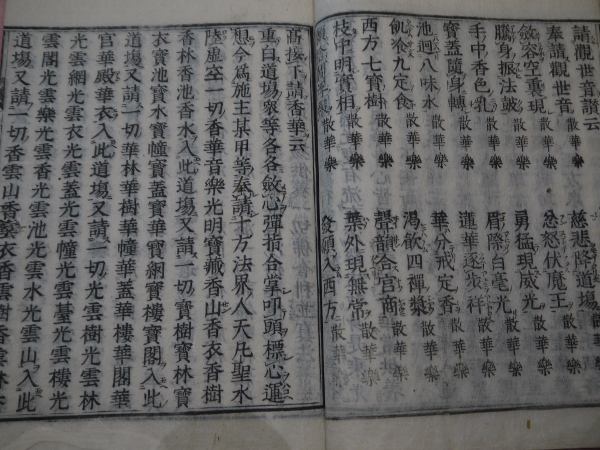 請觀世音讃云
奉請觀世音 散華樂 慈悲降道場 散華樂
斂容空裏現 散華樂 忿怒伏魔王 散華樂
騰身振法鼓 散華樂 勇猛現威光 散華樂
手中香色乳 散華樂 眉際白毫光 散華樂
寶蓋隨身轉 散華樂 蓮華逐步祥 散華樂
池迴八味水 散華樂 華分戒定香 散華樂
飢飡九定食 散華樂 渴飲四禪漿 散華樂
西方七寶樹 散華樂 聲韻合宮商 散華樂
枝中明實相 散華樂 葉外現無常 散華樂
發願入西方
高接下請香華云
重白道場衆等各各斂心彈指合掌叩頭標心運
想今爲施主某甲等奉請十方法界人天凡聖水
陸虛空一切香華音樂光明寶藏香山香衣香樹
香林香池香水入此道場又請一切寶樹寶林寶
衣寶池寶水寶幢寶蓋寶華寶網寶樓寶閣入此
道場又請一切華林華樹華幢華蓋華樓華閣華
宮華殿華衣入此道場又請一切光雲樹光雲林
光雲網光雲衣光雲蓋光雲幢光雲臺光雲樓光
雲閣光雲樂光雲香光雲池光雲水光雲山入此
道場又請一切香雲山香雲衣香雲樹香雲林